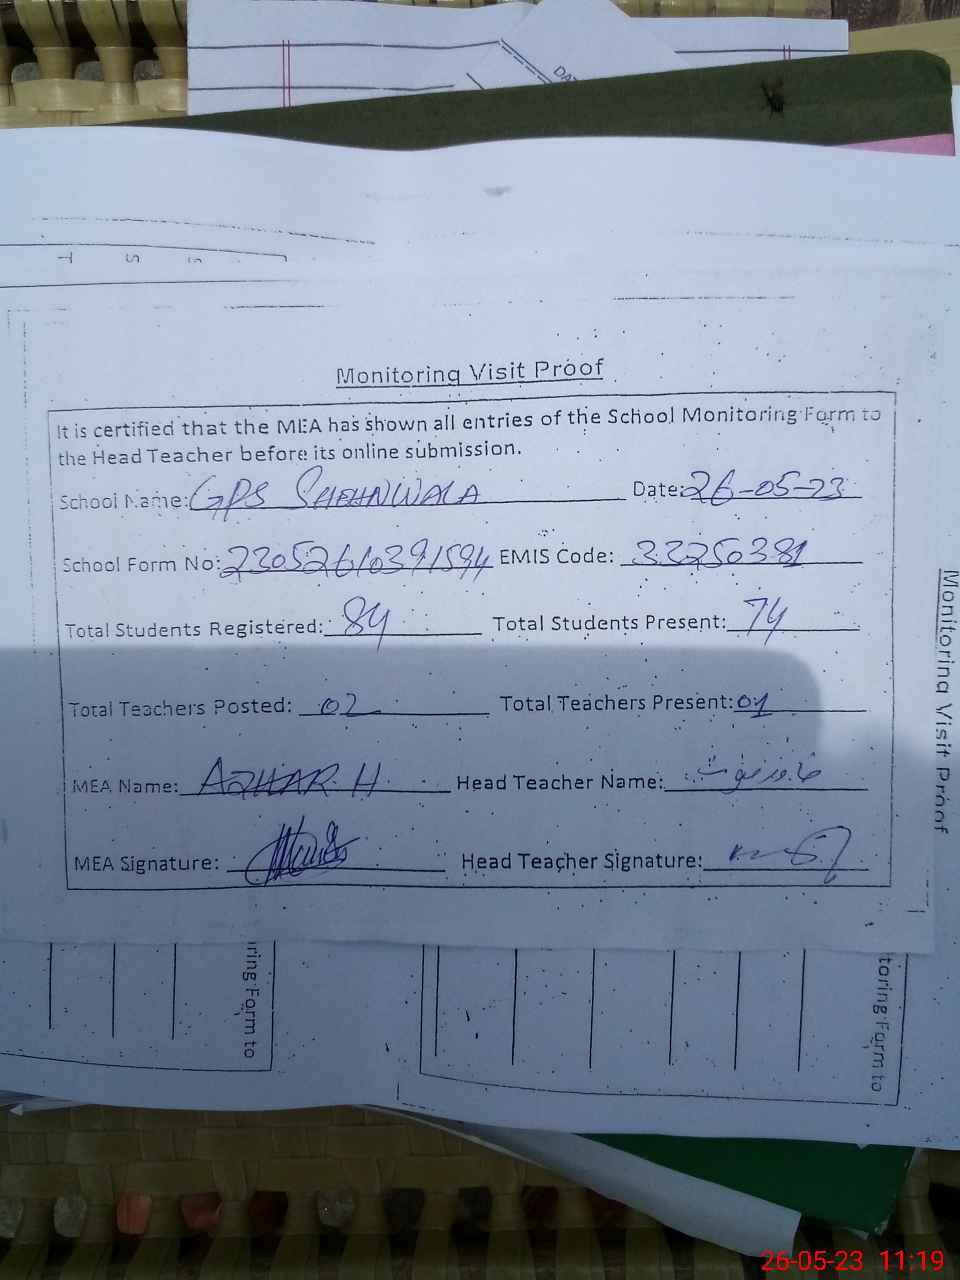 DA
T S S
Monitoring Visit Proof
It is certified that the MEA has shown all entries of the School Monitoring Form to
the Head Teacher before its online submission.
School Name: GPS SHEHNWALA Date: 26-05-23
School Form No: 23052610391594 EMIS Code: 33250381
Total Students Registered: 84 Total Students Present: 74
Total Teachers Posted: 02 Total Teachers Present: 01
MEA Name: AZHAR H Head Teacher Name:
MEA Signature: Head Teacher Signature:
Monitoring Visit Proof
ring Form to
toring Form to
26-05-23 11:19